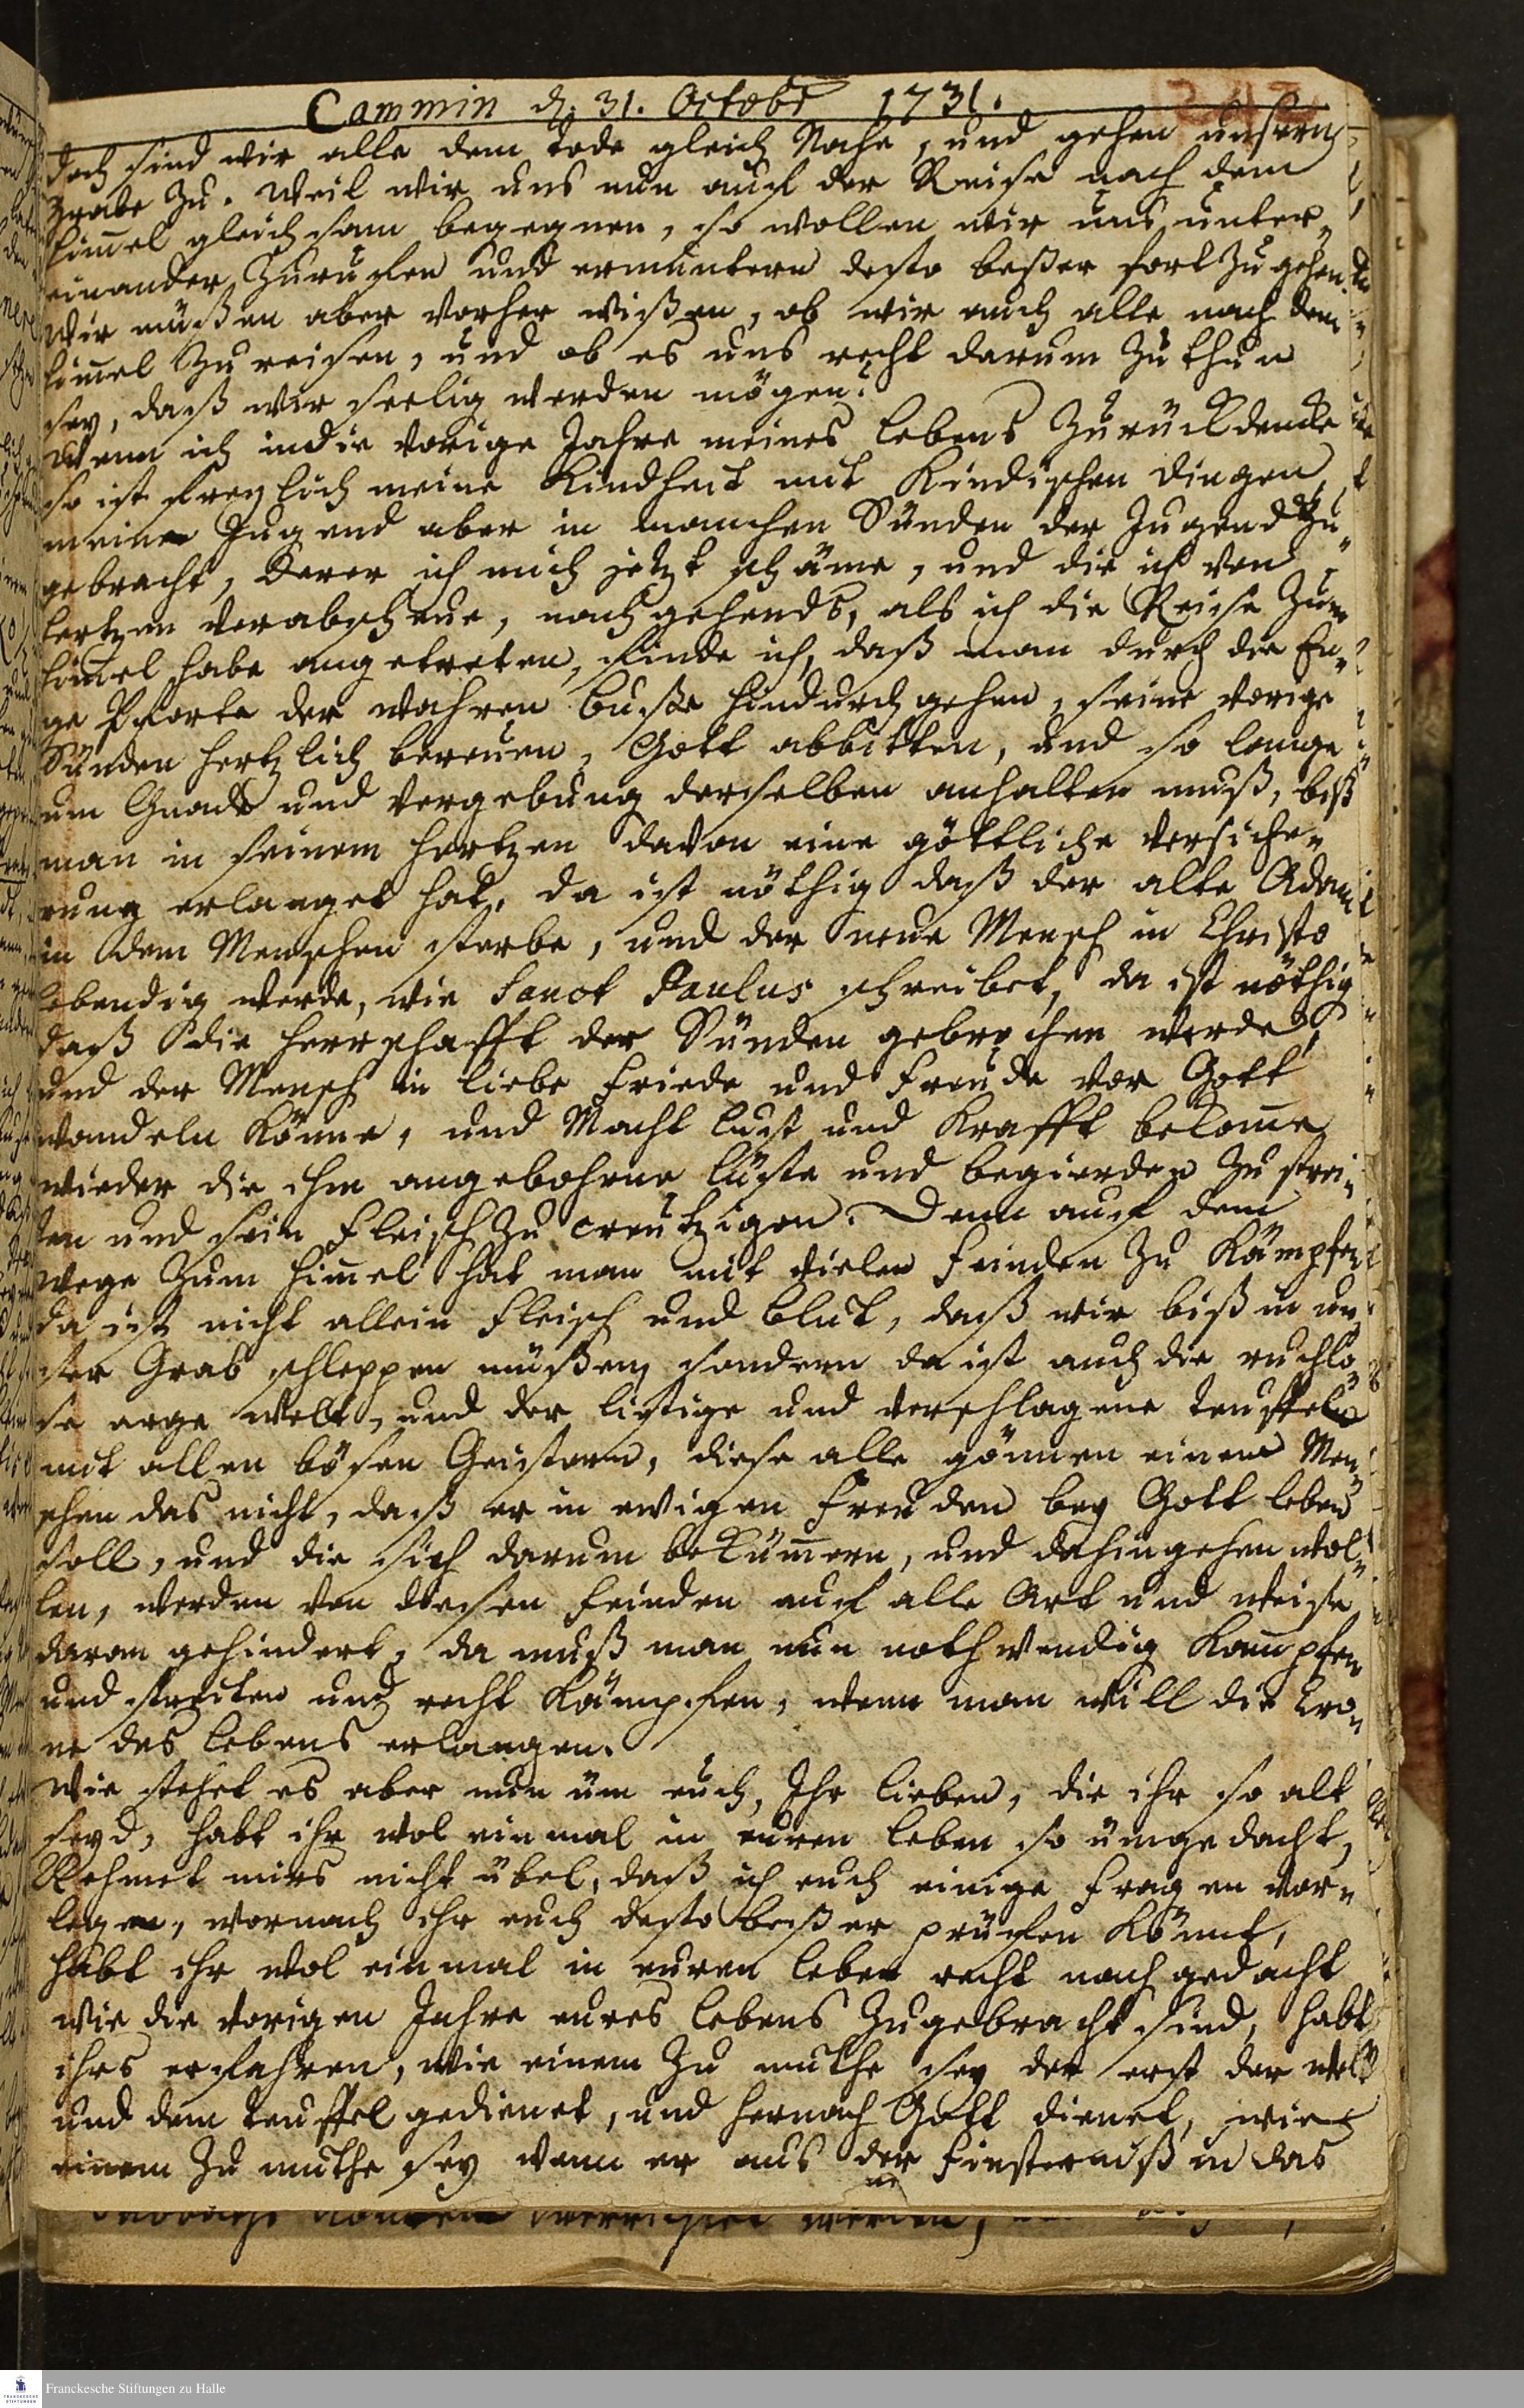 Cammin d. 31. Octobr 1731.
doch sind wir alle dem Tode gleich Nahe, und gehen unserm
Grabe zu. Weil wir uns nun auf der Reise nach dem
Himel gleichsam begegnen, so wollen wir uns unter„
einander zuruffen und ermuntern desto beßer fort zu gehen.
Wir müßen aber vorher wißen, ob wir auch alle nach dem
Himel zu reisen, und ob es uns recht darum zu thun
sey, daß wir seelig werden mögen?
Wenn ich in die vorige Jahre meines Lebens zurück dencke
so ist freylich meine Kindheit mit Kindischen Dingen,
meine Jugend aber in manchen Sünden der Jugend zu„
gebracht, derer ich mich jetzt schäme, und die ich von
Hertzen verabscheue, nachgehends, als ich die Reise zum
Himel habe angetreten, finde ich, daß man durch die En„
ge Pforte der wahren Buße hindurch gehen, seine vorige
Sünden hertzlich bereuen, Gott abbitten, und so lange
um Gnade und Vergebung derselben anhalten muß, biß
man in seinem Hertzen davon eine göttliche Versiche„
rung erlanget hat. Da ist nöthig daß der alte Adam
in dem Menschen sterbe, und der neue Mensch in Christo
lebendig werde, wie Sanct Paulus schreibet, da ist nöthig
daß die Herrschafft der Sünden gebrochen werde,
und der Mensch in Liebe Friede und Freude vor Gott
wandeln könne, und Macht Lust und Krafft bekome
wieder die ihm angebohrne Lüste und Begierden zu strei„
ten und sein Fleisch zu creutzigen. Denn auf dem
Wege zum Himel hat man mit vielen Feinden zu Kämpfen
da ist nicht allein Fleisch und Blut, daß wir biß in un„
ser Grab schleppen müßen, sondern da ist auch die ruchlo„
se arge Welt, und der listige und verschlagene Teuffel
mit allen bösen Geistern, diese alle gönnen einem Men„
schen das nicht, daß er in ewigen Freuden bey Gott leben
soll, und die sich darum beKümern, und dahingehen wol„
len, werden von diesen Feinden auf alle Art und Weise
daran gehindert, da muß man nun nothwendig Kampfen
und streiten und recht Kämpfen, wenn man will die Cro„
ne des Lebens erlangen.
Wie stehet es aber nun üm euch, Ihr Lieben, die ihr so alt
seyd, habt ihr wol einmal in euren Leben so ümgedacht,
Nehmet mirs nicht übel, daß ich euch einige Fragen vor„
legen, wornach ihr euch desto beßer prüfen Könnt,
Habt ihr wol einmal in euren Leben recht nachgedacht
wie die vorigen Jahre eures Lebens zugebracht sind, habt
ihrs erfahren, wie einem zu muthe sey der erst der Welt
und dem Teuffel gedienet, und hernach Gott dienet, wie
einem zu muthe sey wenn er aus der Finsterniß in das
Franckesche Stiftungen zu Halle